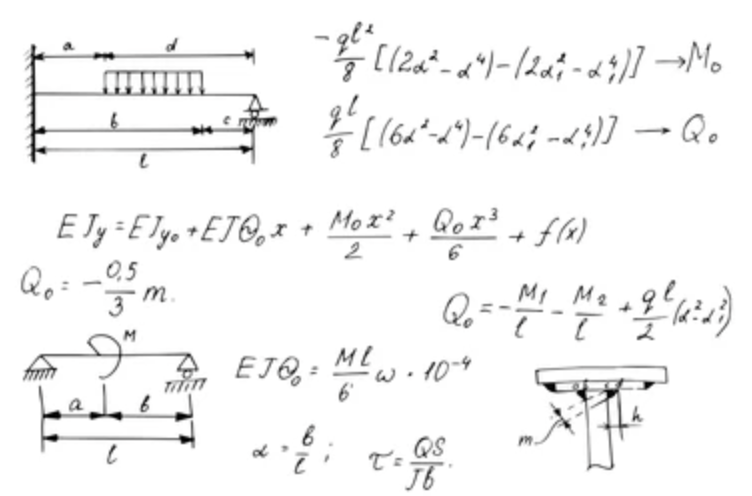 a d
b c
l
-ql²/8 [(2α² - α⁴) - (2α₁² - α₁⁴)] → M₀
ql/8 [(6α² - α⁴) - (6α₁² - α₁⁴)] → Q₀
EJy = EJy₀ + EJΘ₀x + M₀x²/2 + Q₀x³/6 + f(x)
Q₀ = - 0,5/3 m.
Q₀ = - M₁/l - M₂/l + ql/2 (α² - α₁²)
M
a b
l
EJΘ₀ = Ml/6 ω · 10⁻⁴
α = b/l ; τ = QS/Jb.
m h